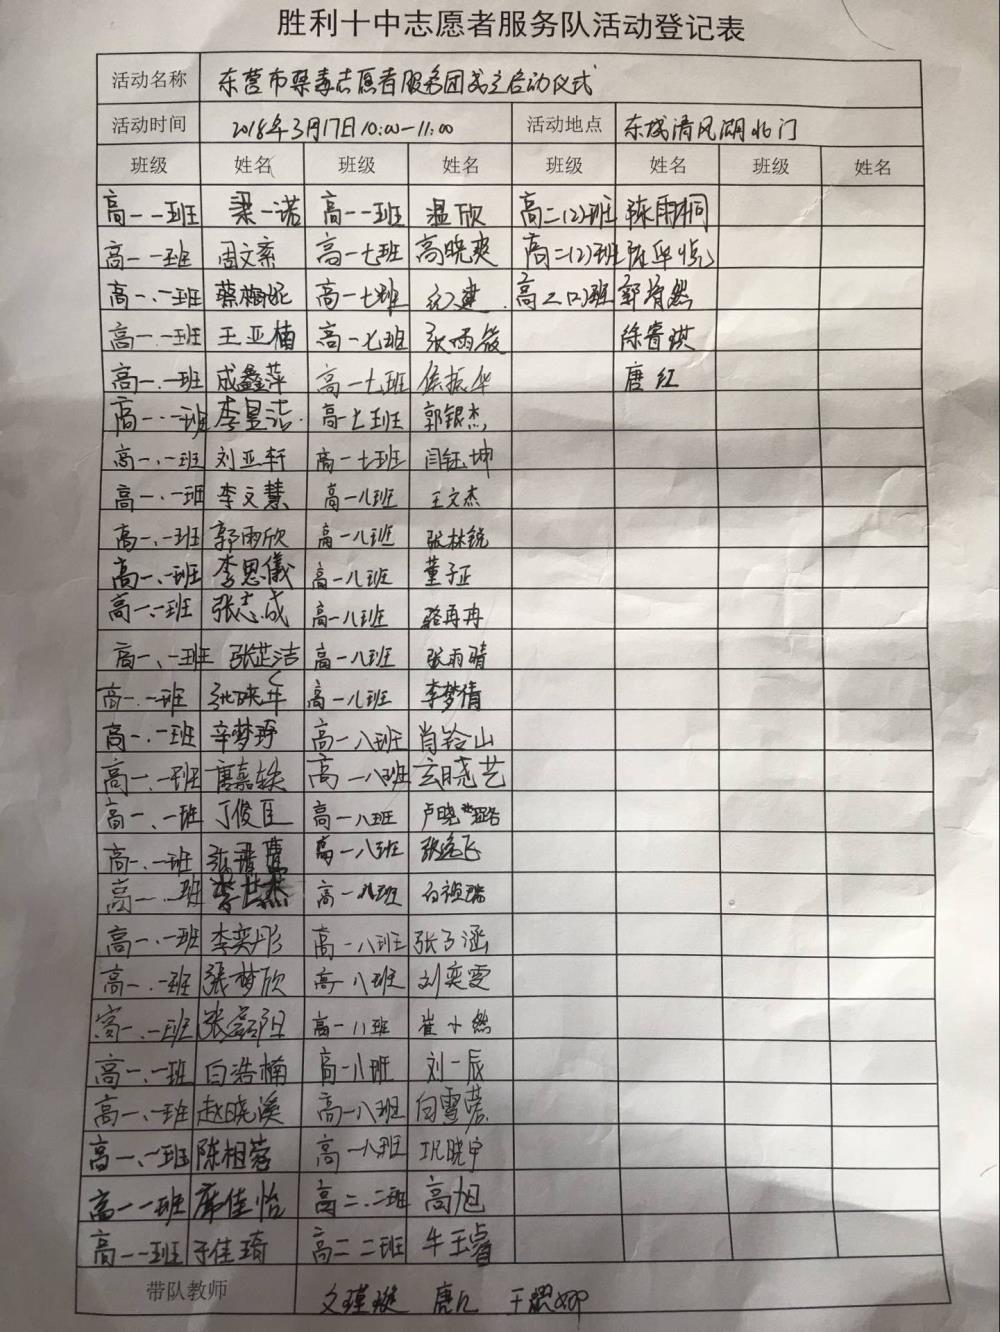 胜利十中志愿者服务队活动登记表
活动名称 东营市禁毒志愿者服务团成立启动仪式
活动时间 2018年3月17日10:00-11:00 活动地点 东城清风湖北门
班级 姓名 班级 姓名 班级 姓名 班级 姓名
高一一班 梁一诺 高一一班 温欣 高二(2)班 陈雨桐
高一一班 周文 高一七班 高晓爽 高二(2)班
高一.一班 蔡梅妮 高一七班 建 高二(2)班 郭
高一.一班 王亚楠 高一七班 张雨筱 徐睿琪
高一.一班 成鑫萍 高一七班 侯振华 唐红
高一.一班 李昱洁 高一七班 郭银杰
高一.一班 刘亚轩 高一七班 闫钰坤
高一.一班 李文慧 高一八班 王文杰
高一.一班 郭雨欣 高一八班 张林锐
高一、一班 李思儀 高一八班 董子正
高一.一班 张志成 高一八班 骆再冉
高一、一班 张芷洁 高一八班 张雨晴
高一.一班 张映华 高一八班 李梦倩
高一.一班 辛梦 高一八班 肖铃山
高一.一班 唐嘉轶 高一八班 玄晓艺
高一、一班 丁俊臣 高一八班 卢晓
高一.一班 张 高一八班 张逸飞
高一.一班 李世杰 高一八班 白祖瑞
高一.一班 李奕彤 高一八班 张子涵
高一.一班 张梦欣 高一八班 刘奕雯
高一.一班 张 阳 高一八班 崔小然
高一.一班 白浩楠 高一八班 刘一辰
高一、一班 赵晓溪 高一八班 向雪蓉
高一、一班 陈相蓉 高一八班 巩晓宇
高一一班 席佳怡 高二.二班 高旭
高一一班 于佳琦 高二二班 牛玉睿
带队教师 文瑾璇 唐红 王